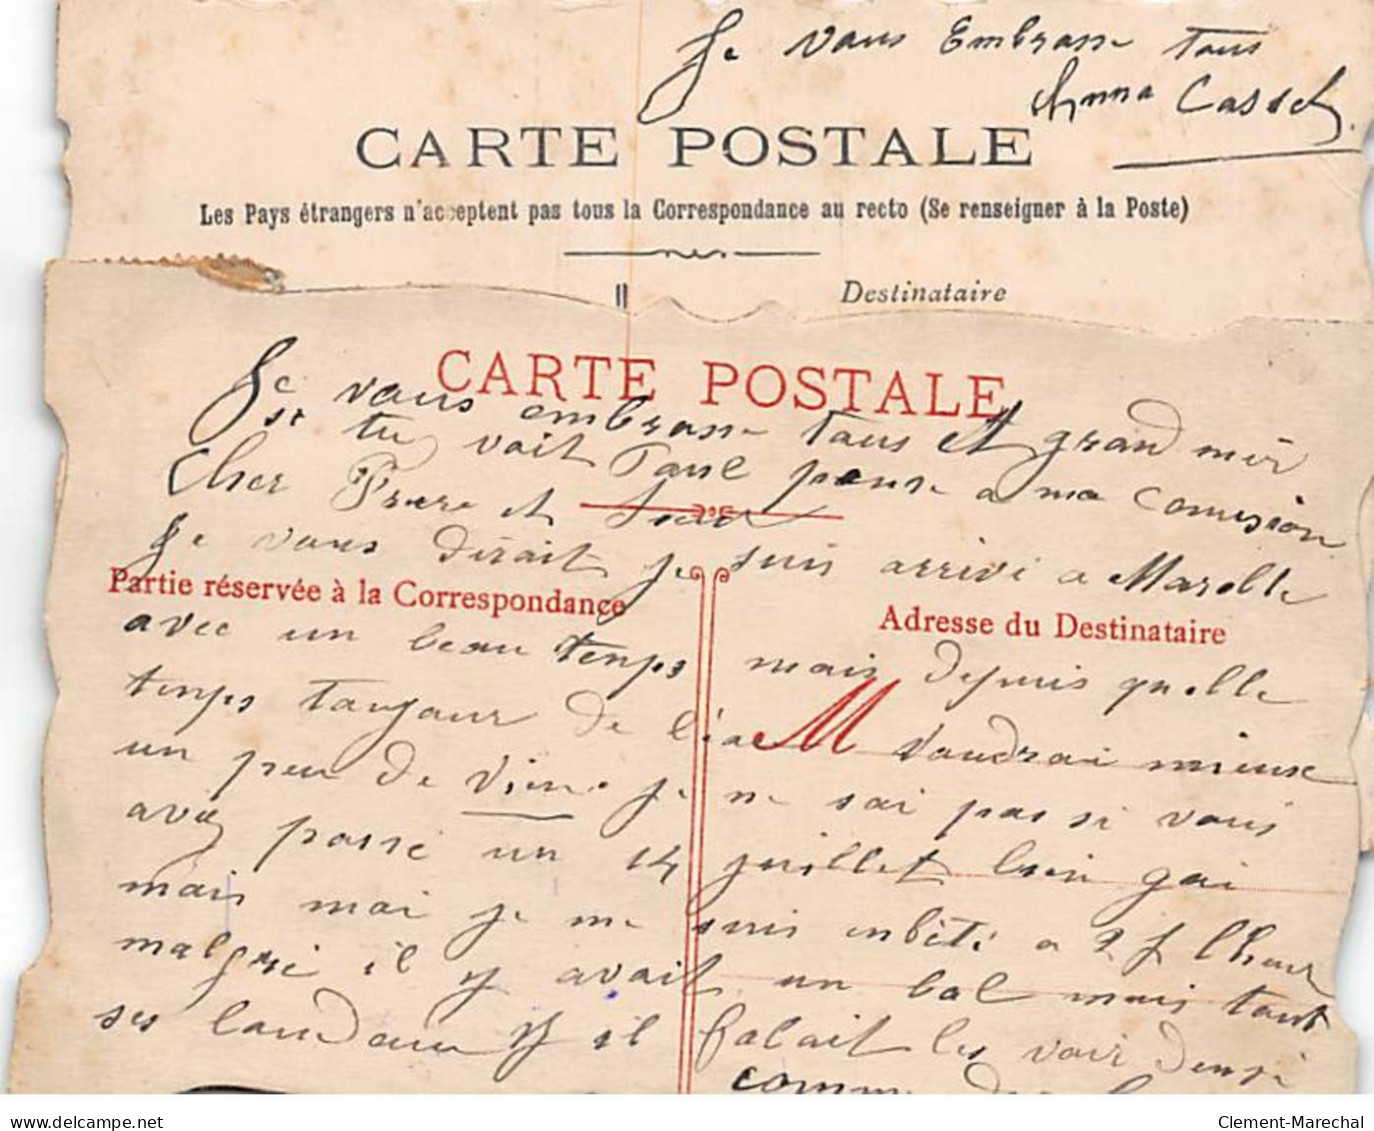 Je vous Embrasse tous
Anna Cassel
CARTE POSTALE
Les Pays étrangers n'acceptent pas tous la Correspondance au recto (Se renseigner à la Poste)
Destinataire
CARTE POSTALE
Je vous embrasse tous et grand mèr
si tu voit Paul pense a ma comision
Cher Frere et Seur
Je vous dirait je suis arrivi a Marolle
Partie réservée à la Correspondance
Adresse du Destinataire
avec un beau temps mais depuis quelle
temps toujour de l'eau M vaudrai mieux
un peu de vien je ne sai pas si vous
avez passé un 14 juillet bien gai
mais moi je me suis enbété a 2 f l'heur
malgré il y avait un bal mais tout
ses landau il falait les voir densé
comme
Clement-Marechal
delcampe.net